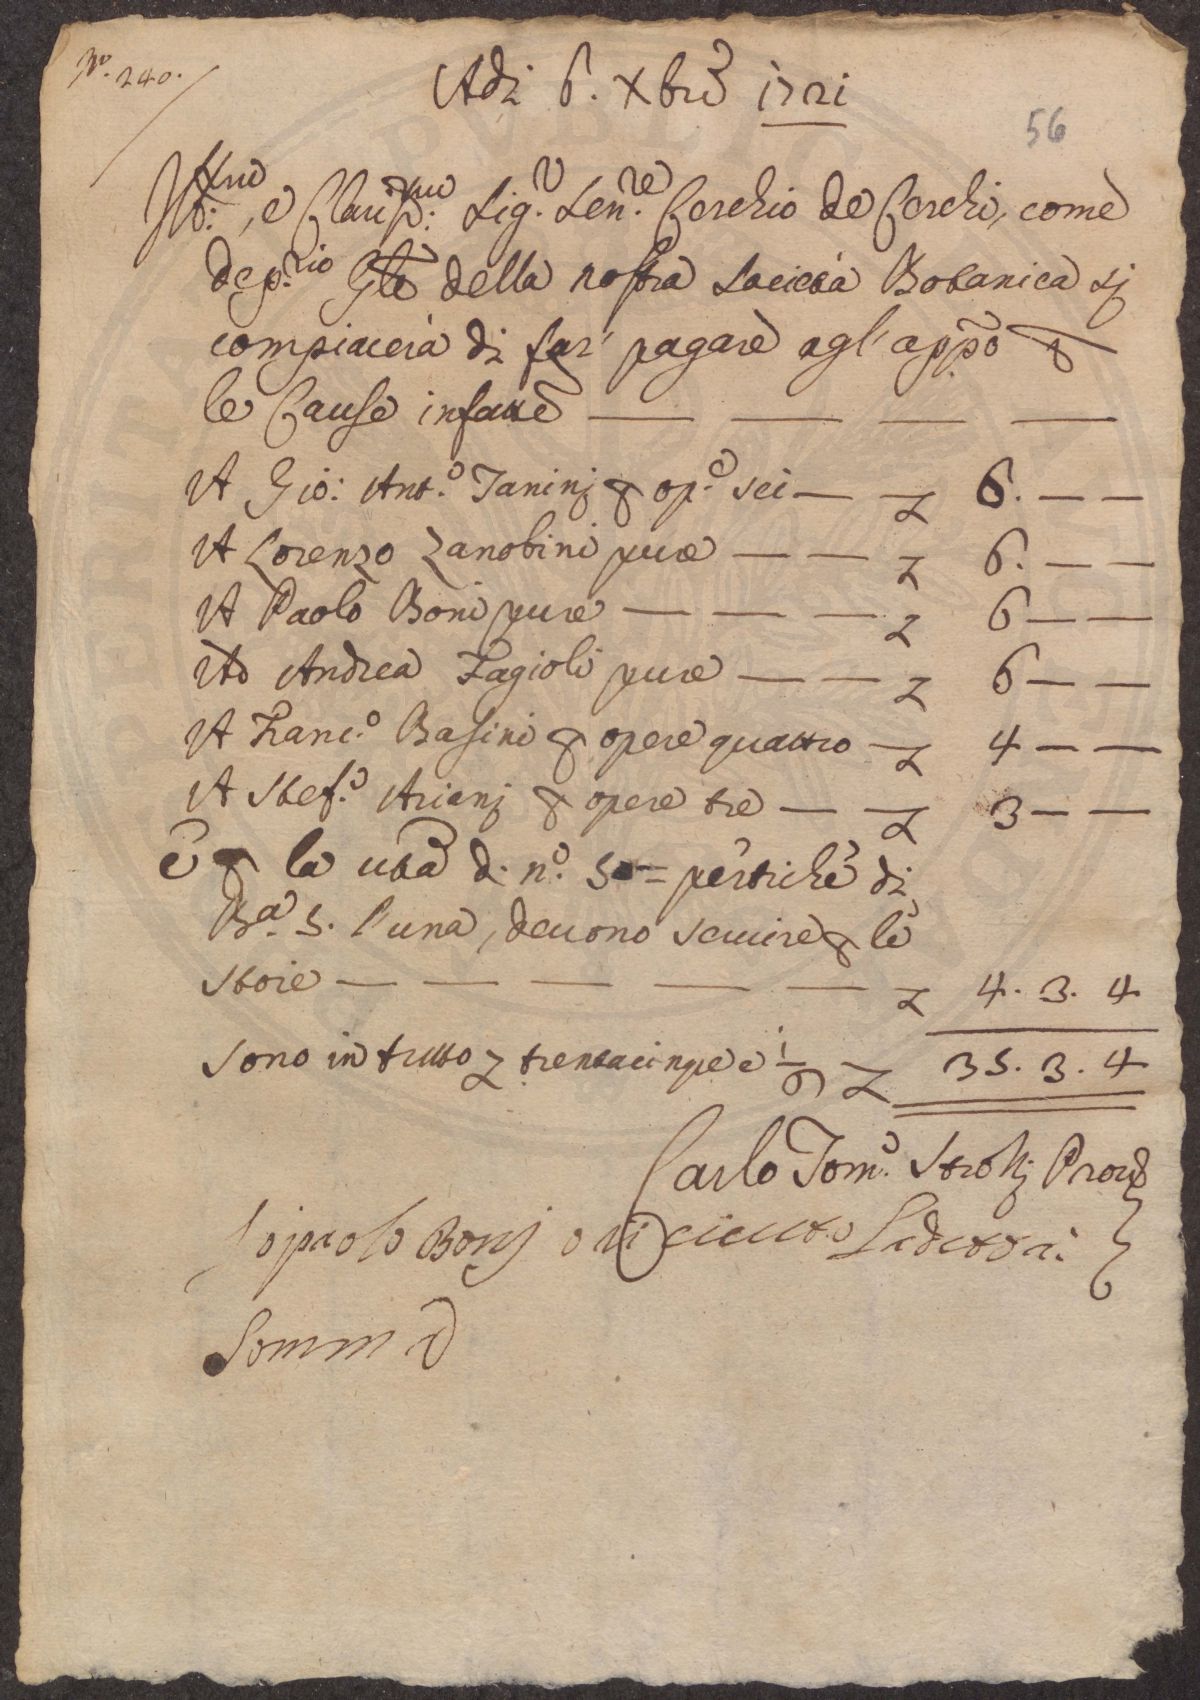 N.° 240.
Adi 6. Xbre 1721
56
Ill:mo, e Clariss:mo Sig.r Sen.re Cerchio de Cerchi, come
dep.rio Gle della nostra Società Botanica si
compiacerà di far' pagare agl' appo p
le Cause infatte
A Gio: Ant.o Janinj p op.e sei — £ 6. — —
A Lorenzo Zanobini pure — — £ 6. — —
A Paolo Boni pure — — — £ 6 — —
Ad Andrea Fagioli pure — — £ 6 — —
A Franc.o Basini p opere quattro — £ 4 — —
A Stef.o Arianj p opere tre — — £ 3 — —
E p la uta d. n.o 50 = pertiche di
Ba. 5. l'una, deuono seruire p le
stoie — — — — — £ 4. 3. 4
Sono in tutto £ trentacinque e £ 35. 3. 4
Carlo Tom.o Strozzj Prou.e
Io paolo Bonj o riceuuto La detta
Somma